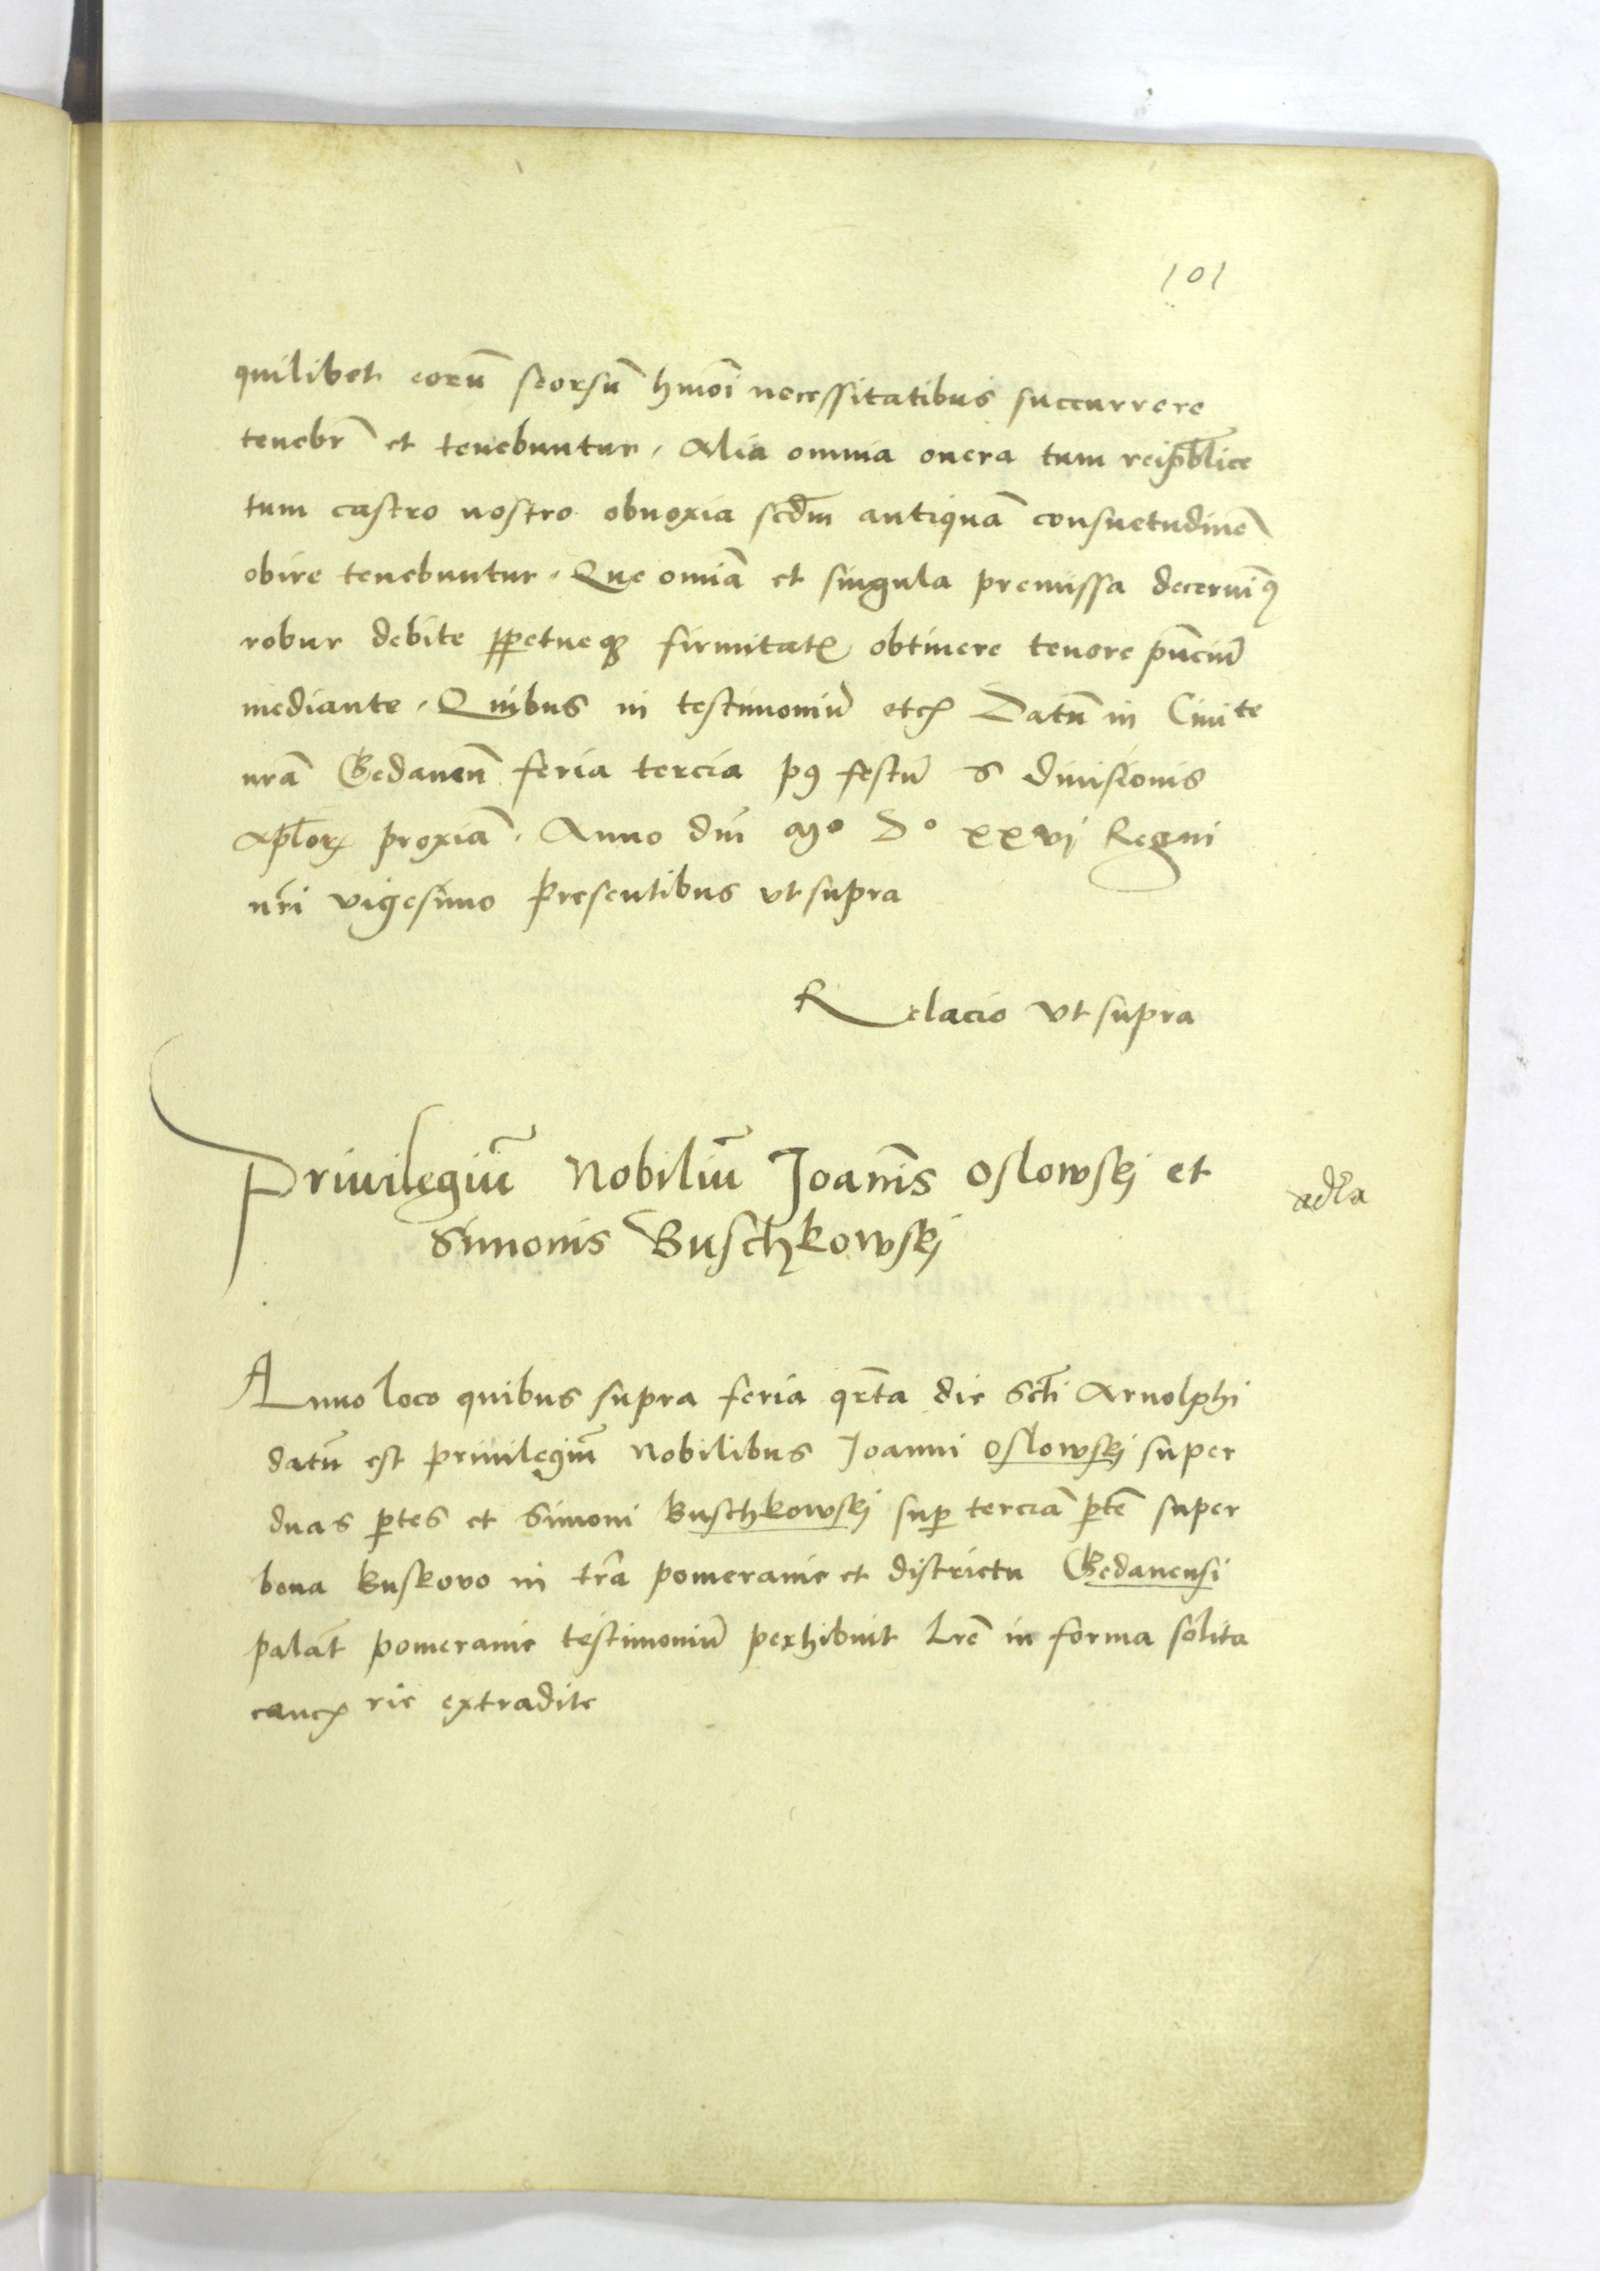 101
quilibet eorū seorsū hmōi necessitatibus succurrere
tenebr̄ et tenebuntur. Alia omnia onera tum reip̄blice
tum castro nostro obnoxia scdm̄ antiquā consuetudinē
obire tenebuntur. Que omīa et singula premissa decernimꝰ
robur debite ꝑpetueqꝫ firmitatꝭ obtinere tenore pn̄ciū
mediante. Quibus in testimoniū etcꝭ Datū in Ciuite
nrā Gedanen̄ feria tercia pꝰ festū S diuisionis
Apl̄oꝝ proxīa. Anno dn̄i Mº Dº xxvj Regni
nr̄i vigesimo presentibus vt supra
Relacio vt supra
Priuilegiū Nobiliū Joannis Oslowskj et
Simonis Buschkowskj
Anno loco quibus supra feria qr̄ta die Scti Arnolphi
datū est priuilegiū Nobilibus Joanni Oslowskj super
duas ꝑtes et Simoni Buschkowskj suꝑ terciā ꝑtē super
bona Buskovo in tr̄a pomeranie et districtu Gedanensi
palat̄ pomeranie testimoniū perhibuit Lr̄e in forma solita
cancꝭ rie extradite